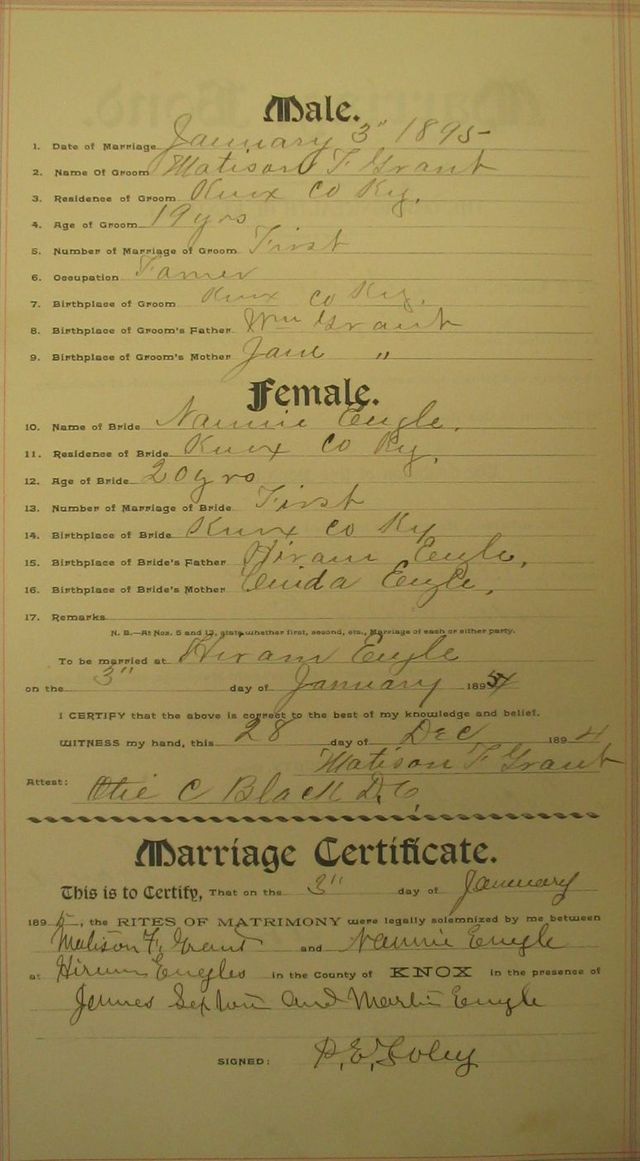 Male.
1. Date of Marriage January 3" 1895
2. Name Of Groom Matison F Grant
3. Residence of Groom Knox Co Ky.
4. Age of Groom 19 yrs
5. Number of Marriage of Groom First
6. Occupation Farmer
7. Birthplace of Groom Knox Co Ky.
8. Birthplace of Groom's Father Wm Grant
9. Birthplace of Groom's Mother Jane "
Female.
10. Name of Bride Nannie Engle.
11. Residence of Bride Knox Co Ky.
12. Age of Bride 20 yrs
13. Number of Marriage of Bride First
14. Birthplace of Bride Knox Co Ky
15. Birthplace of Bride's Father Hiram Engle,
16. Birthplace of Bride's Mother Engle,
17. Remarks
N. B.—At Nos. 5 and 13, state whether first, second, etc., Marriage of each or either party.
To be married at Hiram Engle
on the 3" day of January 1895
I CERTIFY that the above is correct to the best of my knowledge and belief.
WITNESS my hand, this 28 day of Dec 1894
Matison F Grant
Attest: C Black D.C.
Marriage Certificate.
This is to Certify, That on the 3" day of January
1895, the RITES OF MATRIMONY were legally solemnized by me between
Matison F. Grant and Nannie Engle
at Hirum Engles in the County of KNOX in the presence of
and Martin Engle
SIGNED: P. E. Foley